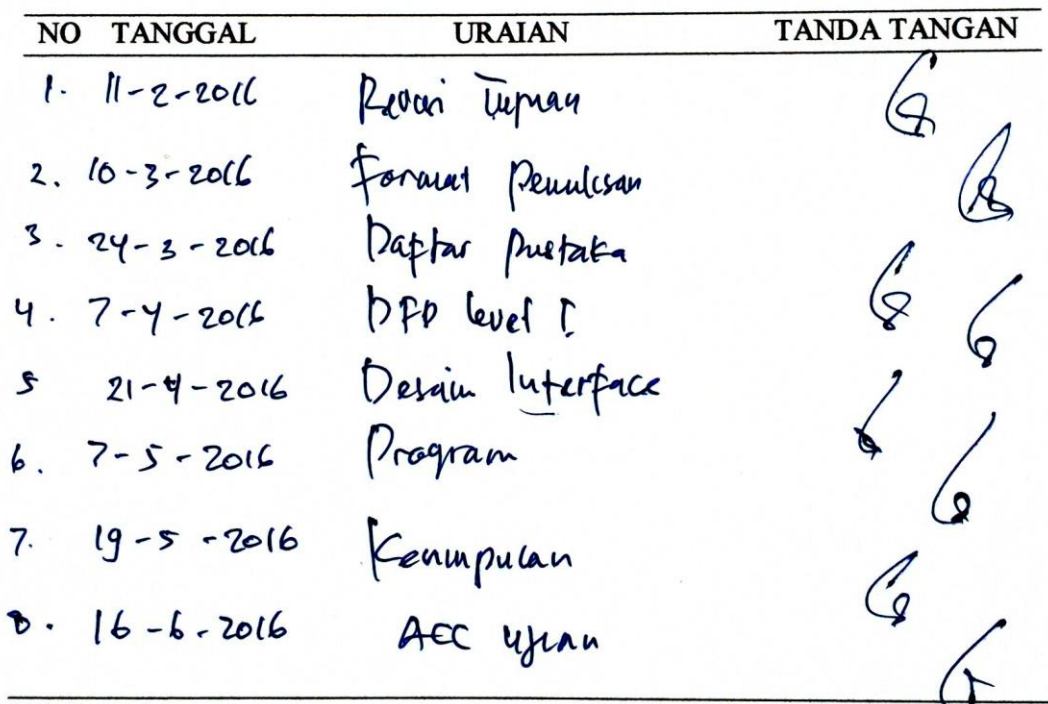 NO TANGGAL URAIAN TANDA TANGAN
1. 11-2-2016 Revisi Tujuan
2. 10-3-2016 Format Penulisan
3. 24-3-2016 Daftar Pustaka
4. 7-4-2016 DFD level I
5 21-4-2016 Desain Interface
6. 7-5-2016 Program
7. 19-5-2016 Kesimpulan
8. 16-6-2016 ACC Ujian